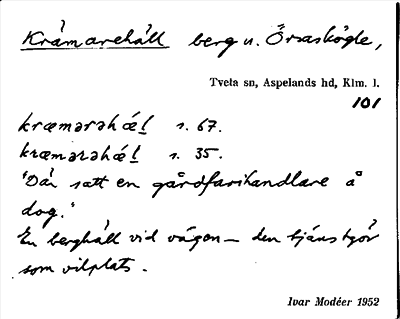 Kråmarehåll berg u. Örsaskögle,
Tveta sn, Aspelands hd, Klm. l.
101
kræmərəhǽl s. 67.
kræmərəhǽl s. 35.
"Där satt en gårdfarihandlare å
dog."
En berghåll vid vägen – den tjänstgör
som vilplats.
Ivar Modéer 1952